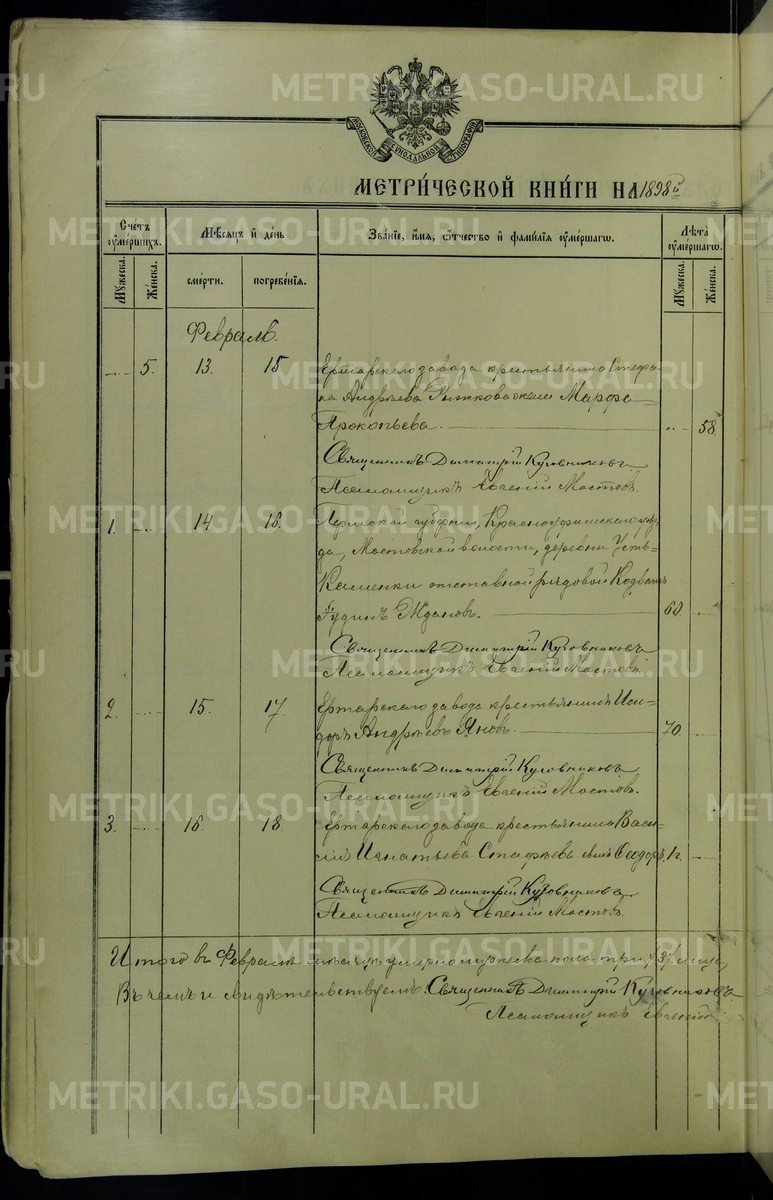 METRIKI.GASO-URAL.RU
МОСКОВСКОЙ СѴНОДАЛЬНОЙ ТИПОГРАФІИ
МЕТРИ́ЧЕСКОЙ КНИ́ГИ НА 1898й
Сче́тъ ᲂу҆ме́ршихъ.
Мѣ́сѧцъ и҆ де́нь
Зва́нїе, и҆́мѧ, ѻ҆́тчество и҆ фами́лїѧ ᲂу҆ме́ршагѡ.
Лѣ́та ᲂу҆ме́ршагѡ.
Мꙋ́жеска.
Же́нска.
сме́рти.
погребе́нїѧ.
Мꙋ́жеска.
Же́нска.
Февраль.
5. 13. 15 Ертарскаго завода крестьянина Стефа-
на Андрѣева Рыжкова жена Марѳа
Прокопьева. 58.
Священникъ Димитрій Куговниковъ
Псаломщикъ Евгеній Мостовъ.
1. 14. 18. Пермской губерніи, Красноуфимскаго уѣз-
да, Мостовской волости, деревни Усть-
Каменки отставной рядовой
Ждановъ. 60.
Священникъ Димитрій Куговниковъ
Псаломщикъ Евгеній Мостовъ.
2. 15. 17. Ертарскаго завода крестьянинъ Иси-
доръ Андрѣевъ Яновъ. 70.
Священникъ Димитрій Куговниковъ
Псаломщикъ Евгеній Мостовъ.
3. 16. 18. Ертарскаго завода крестьянина Васи-
лія Игнатьева Стафѣева сынъ Ѳеодоръ. 1 г.
Священникъ Димитрій Куговниковъ
Псаломщикъ Евгеній Мостовъ.
Итого въ Февралѣ мѣсяцѣ умерло мужеска пола три (3) лица,
Въ чемъ и свидѣтельствуемъ: Священникъ Димитрій Куговниковъ
Псаломщикъ Евгеній